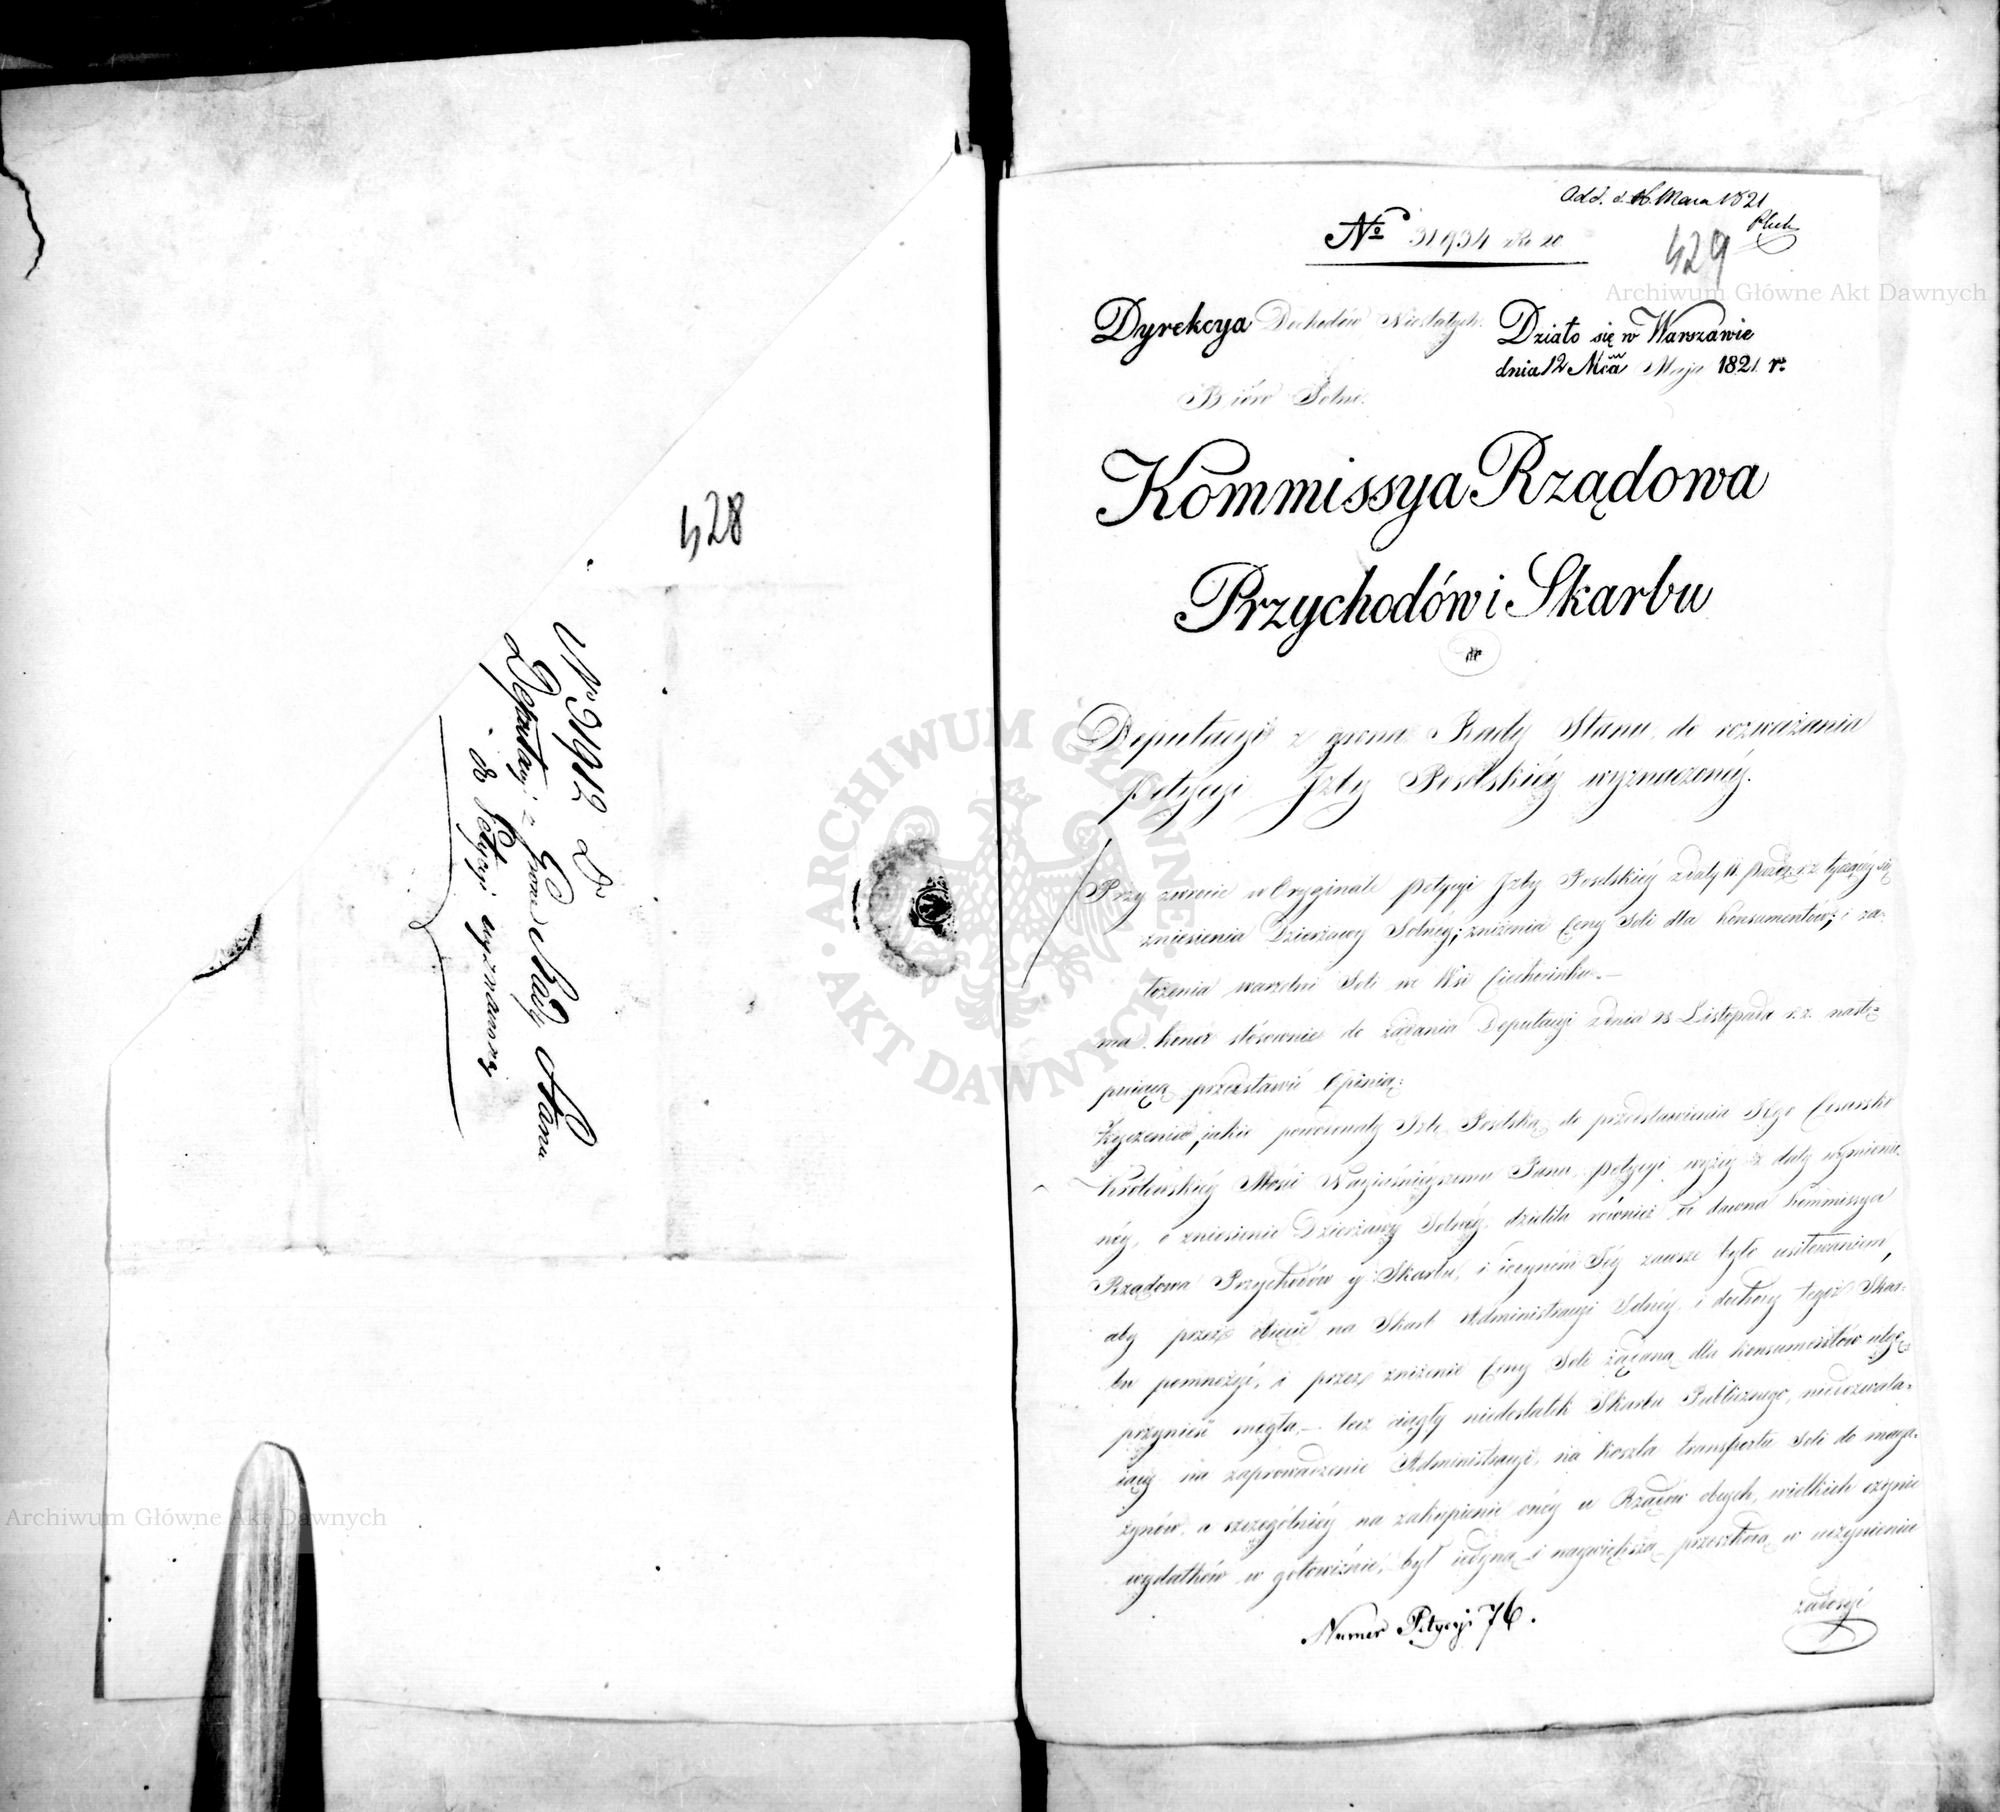 428
No 31912 Dr
Deputacyi z Grona Rady Stanu
do Petycyi wyznaczoney
Odd. d. 16. Maia 1821
No 31934
429
Dyrekcya Dochodów Niestałych
Działo się w Warszawie
dnia 12 Mca Maja 1821 r.
Bióro Solne.
Kommissya Rządowa
Przychodów i Skarbu
do
Deputacyi z grona Rady Stanu do rozważania
petycyi Izby Poselskiéy wyznaczonéy.
Przy zwrocie w Oryginale petycyi Izby Poselskiéy z daty 11 tyczącéy się
zniesienia Dzierżawy Solnéy; zniżenia Ceny Soli dla konsumentów; i za=
łożenia warzelni Soli we Wsi Ciechocinku.—
ma honor stósownie do żądania Deputacyi z dnia 28 Listopada r. z. nastę=
puiącą przedstawić Opinią:
Życzenie, jakie powodowały Izbę Poselską do przedstawienia Jego Cesarsko
Królewskiéy Mości Nayiaśnieyszemu Panu, petycyi wyżéy z daty wymienio=
néy, o zniesienie Dzierżawy Solnéy, dzieliła również od dawna Kommissya
Rządowa Przychodów y Skarbu, i iedyném Jéy zawsze było usiłowaniem,
aby przez obięcie na Skarb Administracyi Solnéy, i dochody tegoż Skar=
bu pomnożyć, i przez zniżenie Ceny Soli żądaną dla konsumentów ulgę
przynieść mogła,— lecz ciągły niedostatek Skarbu Publicznego, niedozwala=
iący na zaprowadzenie Administracyi, na koszta transportu Soli do maga=
zynów, a szczególniéy na zakupienie onéy u Rządów obcych, wielkich czynić
wydatków w gotowiźnie, był iedyną i naywiększą przeszkodą w uczynieniu
zadosyć
Numer Petycyi 76.
Archiwum Główne Akt Dawnych
ARCHIWUM GŁÓWNE AKT DAWNYCH
Archiwum Główne Akt Dawnych